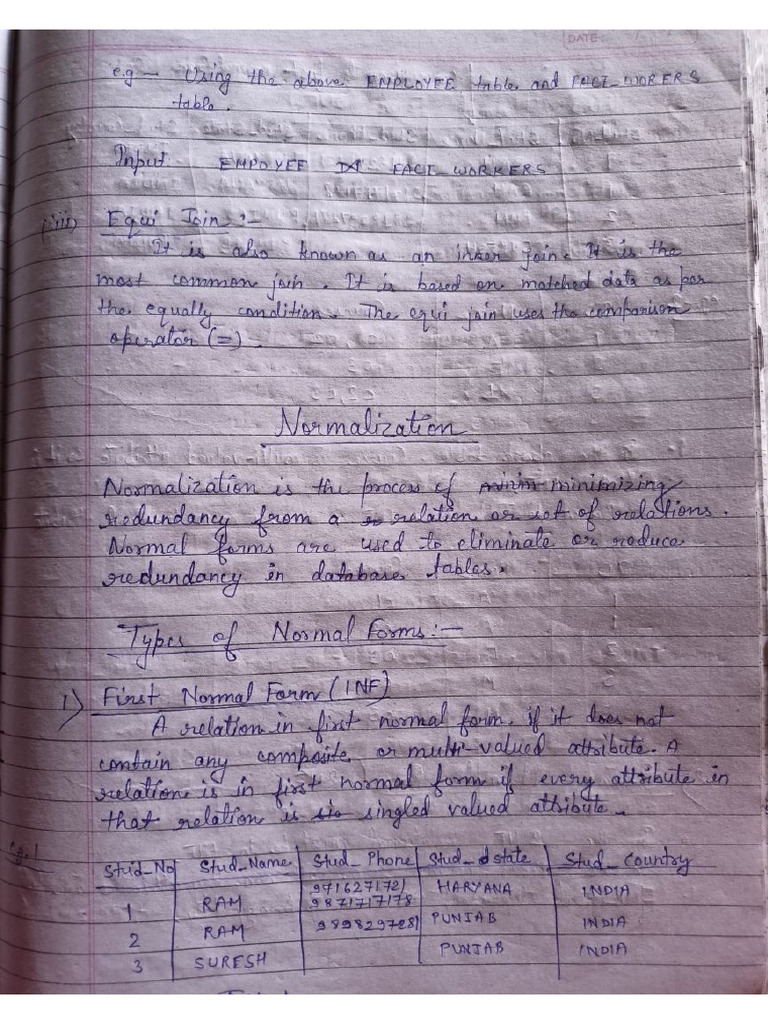 DATE:
e.g - Using the above EMPLOYEE table and FACT_WORKERS
table.
Input EMPOYEE ⟗ FACT_WORKERS
(iii) Equi Join :-
It is also known as an inner join. It is the
most common join. It is based on matched data as per
the equally condition. The equi join uses the comparison
operator (=).
Normalization
Normalization is the process of minimizing
redundancy from a relation or set of relations.
Normal forms are used to eliminate or reduce
redundancy in database tables.
Types of Normal Forms:-
1) First Normal Form (1NF)
A relation in first normal form if it does not
contain any composite or multi-valued attribute. A
relation is in first normal form if every attribute in
that relation is singled valued attribute.
e.g. 1
Stud_No Stud_Name Stud_Phone Stud_state Stud_Country
1 RAM 9716271721 HARYANA INDIA
9871717178
2 RAM 9898297281 PUNJAB INDIA
3 SURESH PUNJAB INDIA